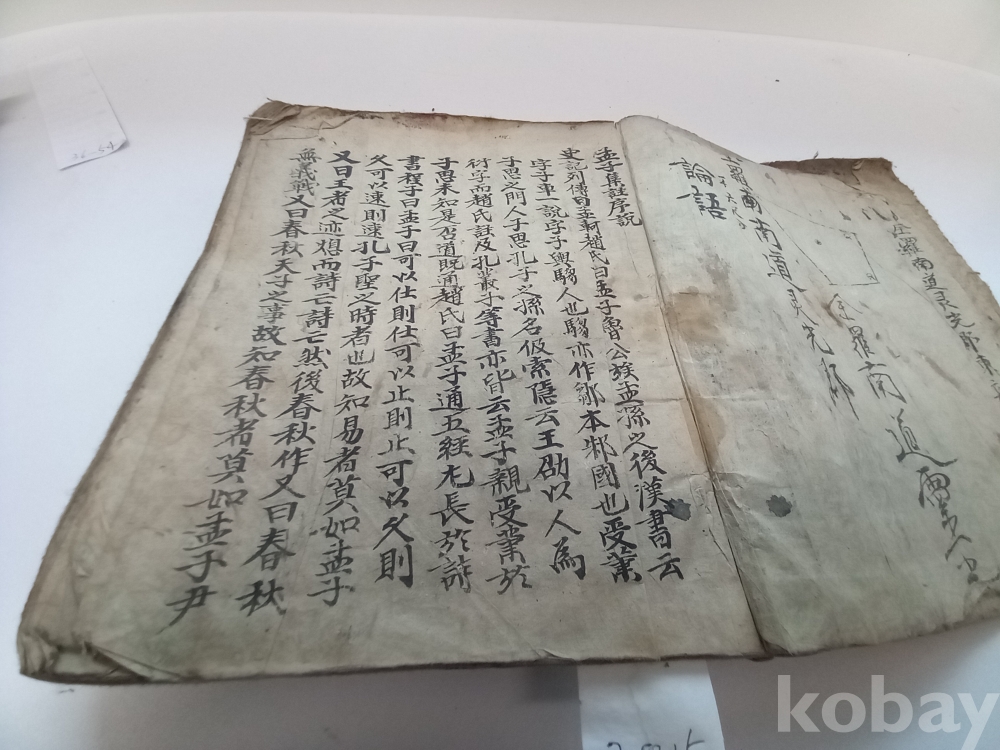 羅南道長光郡東
全羅南道
羅南道長光郡
論語
孟子集註序說
史記列傳曰孟軻趙氏曰孟子魯公族孟孫之後漢書云
字子車一說字子輿騶人也騶亦作鄒本邾國也受業
子思之門人子思孔子之孫名伋索隱云王劭以人為
衍字而趙氏註及孔叢子等書亦皆云孟子親受業於
子思未知是否道既通趙氏曰孟子通五經尤長於詩
書程子曰孟子曰可以仕則仕可以止則止可以久則
久可以速則速孔子聖之時者也故知易者莫如孟子
又曰王者之迹熄而詩亡詩亡然後春秋作又曰春秋
無義戰又曰春秋天子之事故知春秋者莫如孟子尹
36-54
kobay